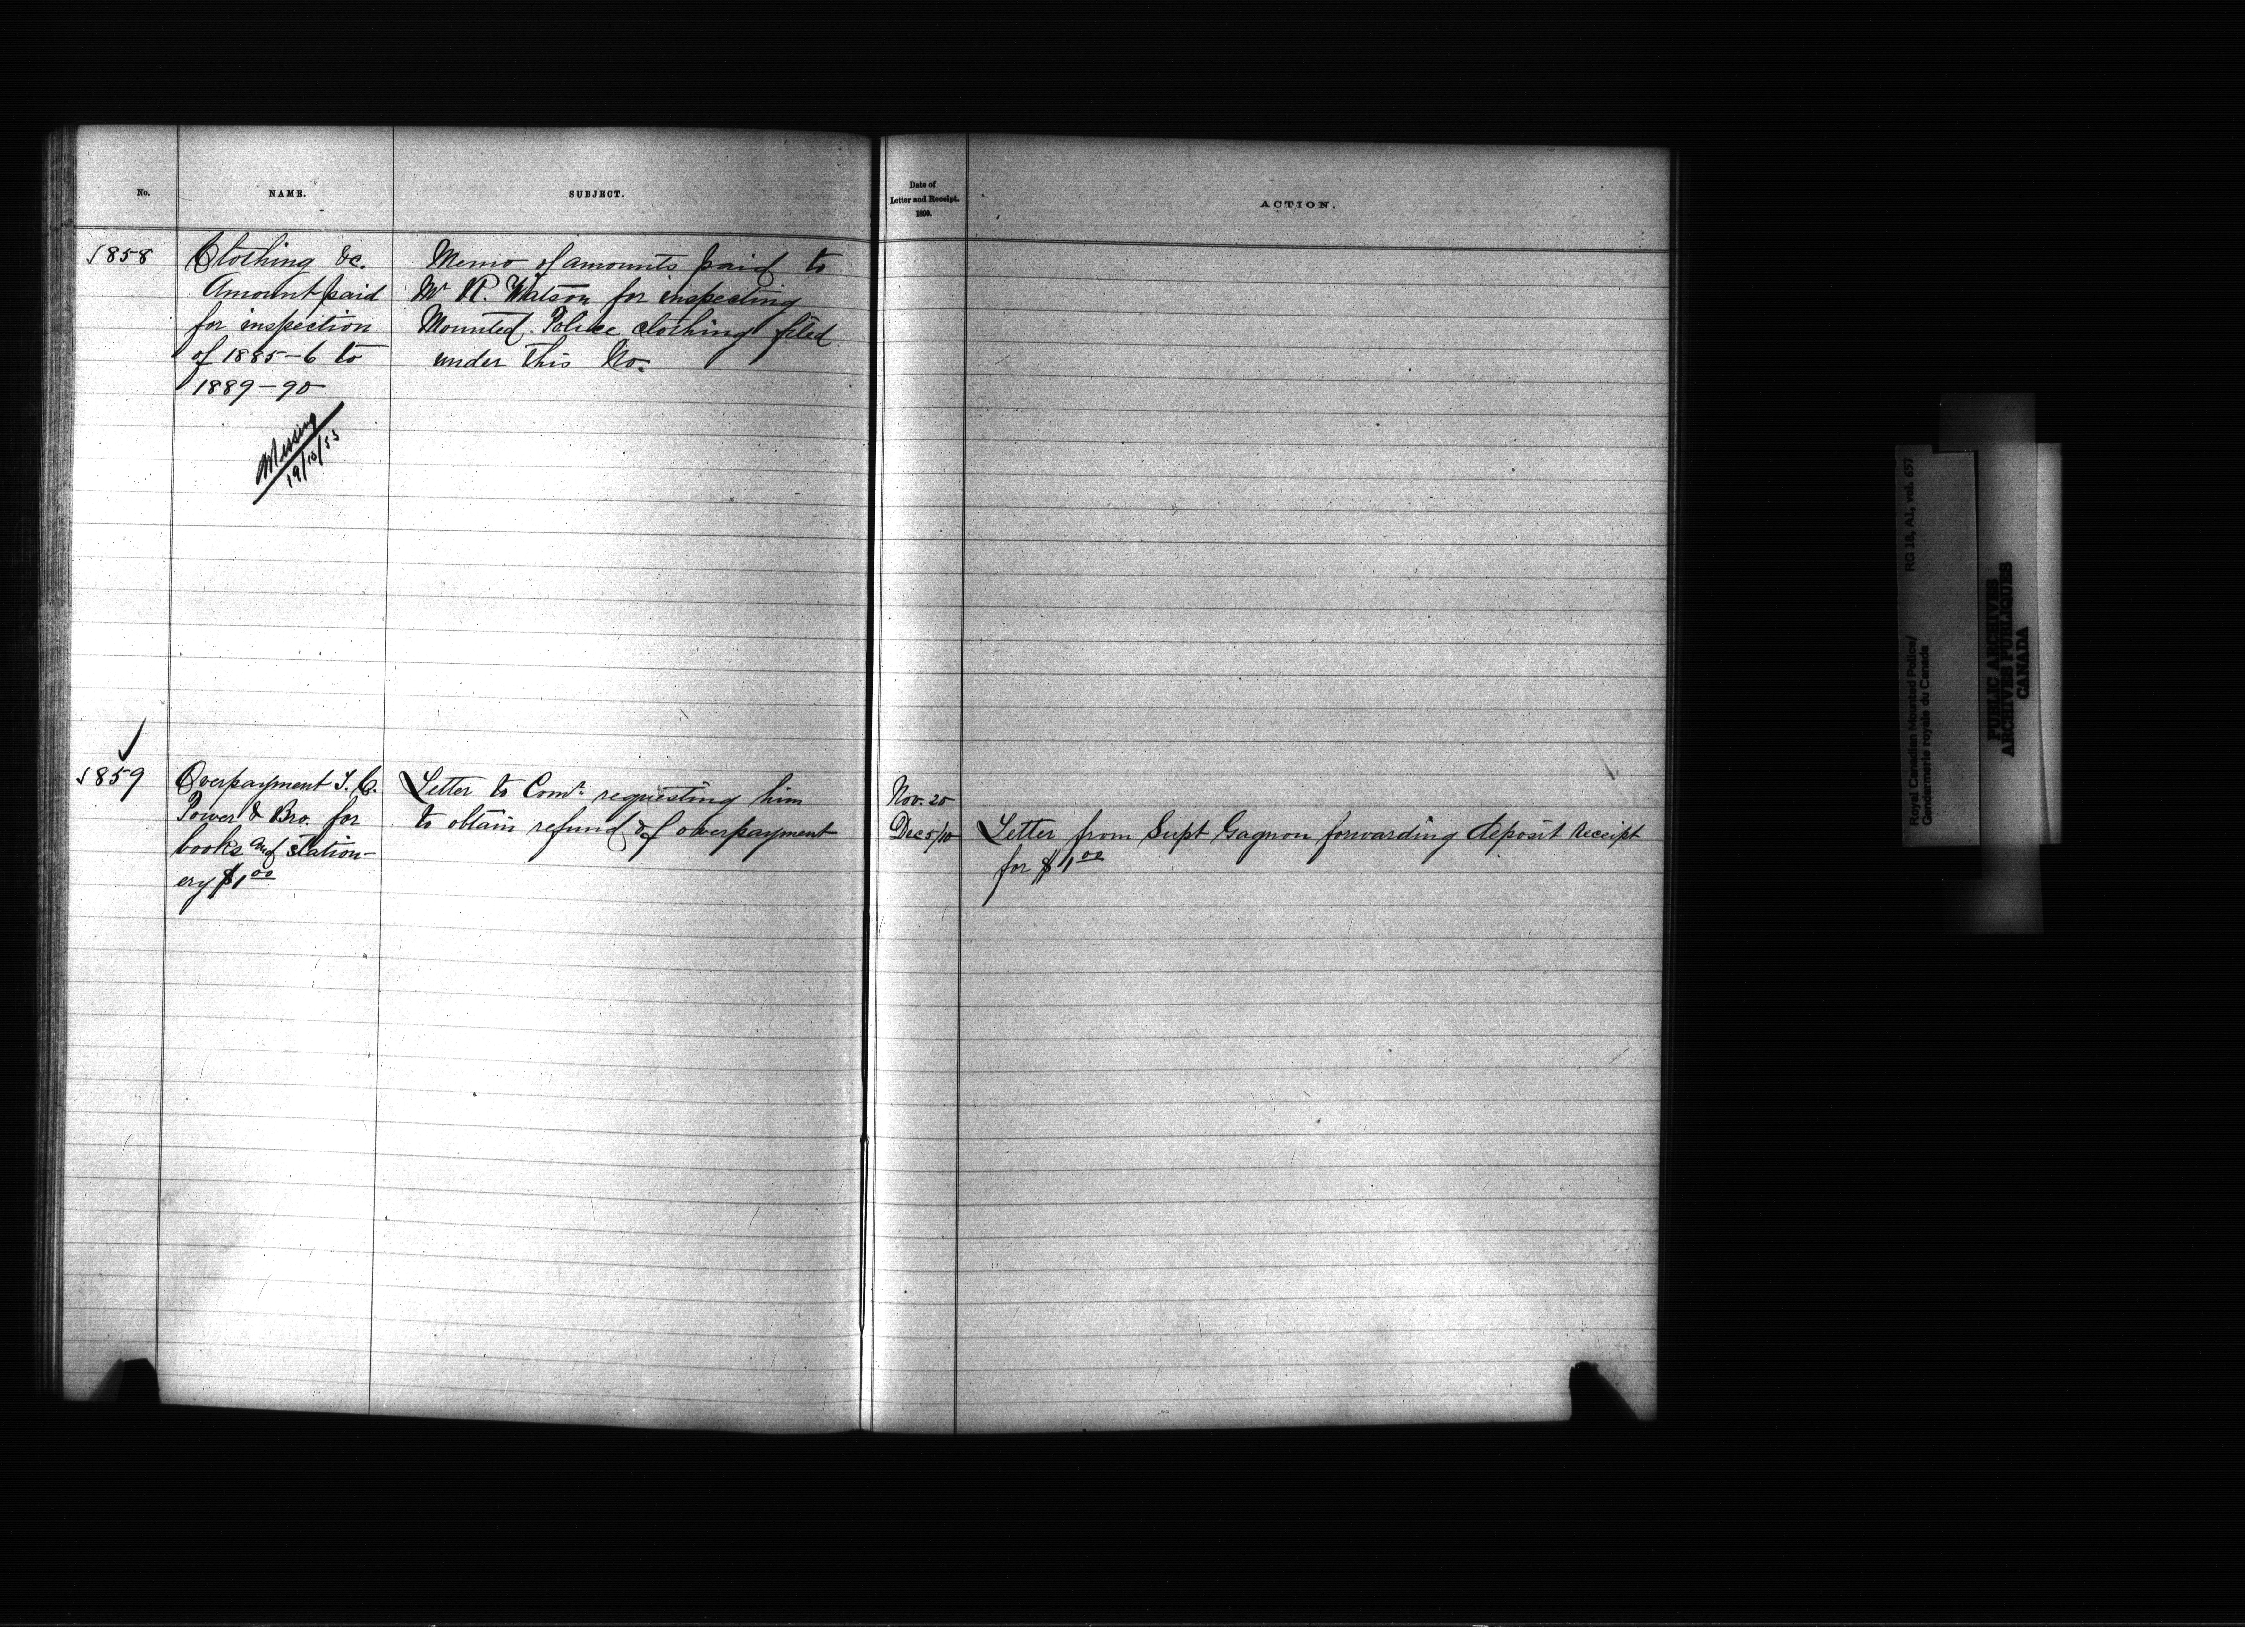 No.
NAME.
SUBJECT.
Date of
Letter and Receipt.
1890.
ACTION.
1858
Clothing &c.
Amount paid
for inspection
of 1885-6 to
1889-90
Missing
19/10/55
Memo of amounts paid to
Mr R. Watson for inspecting
Mounted Police clothing filed
under this No.
1859
Overpayment I. G.
Power & Bro. for
books and station-
ery $1 00
Letter to Comr. requesting him
to obtain refund of overpayment
Nov. 20
Dec 5/10
Letter from Supt Gagnon forwarding deposit receipt
for $1 00
Royal Canadian Mounted Police/
Gendarmerie royale du Canada
RG 18, A1, vol. 657
PUBLIC ARCHIVES
ARCHIVES PUBLIQUES
CANADA